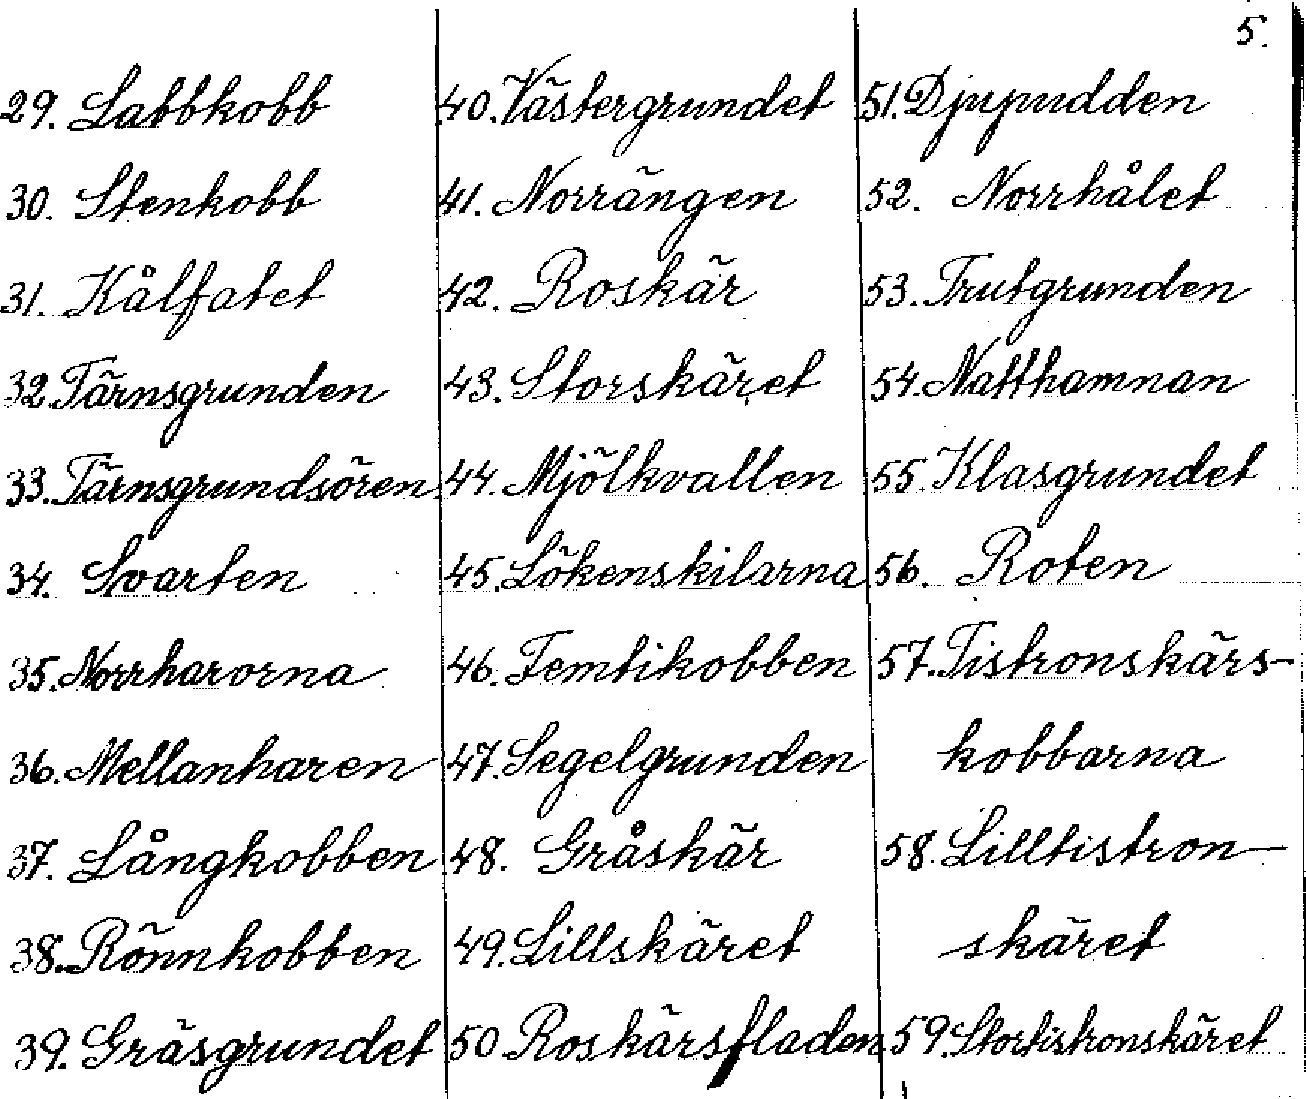 5.
29. Labbkobb
30. Stenkobb
31. Kålfatet
32. Tärnsgrunden
33. Tärnsgrundsören
34. Svarten
35. Norrharorna
36. Mellanharen
37. Långkobben
38. Rönnkobben
39. Gräsgrundet
40. Västergrundet
41. Norrängen
42. Roskär
43. Storskäret
44. Mjölkvallen
45. Lökenskilarna
46. Femtikobben
47. Segelgrunden
48. Gråskär
49. Lillskäret
50 Roskärsfladen
51. Djupudden
52. Norrhålet
53. Trutgrunden
54. Natthamnan
55. Klasgrundet
56. Roten
57. Tistronskärs-
kobbarna
58. Lilltistron-
skäret
59. Stortistronskäret